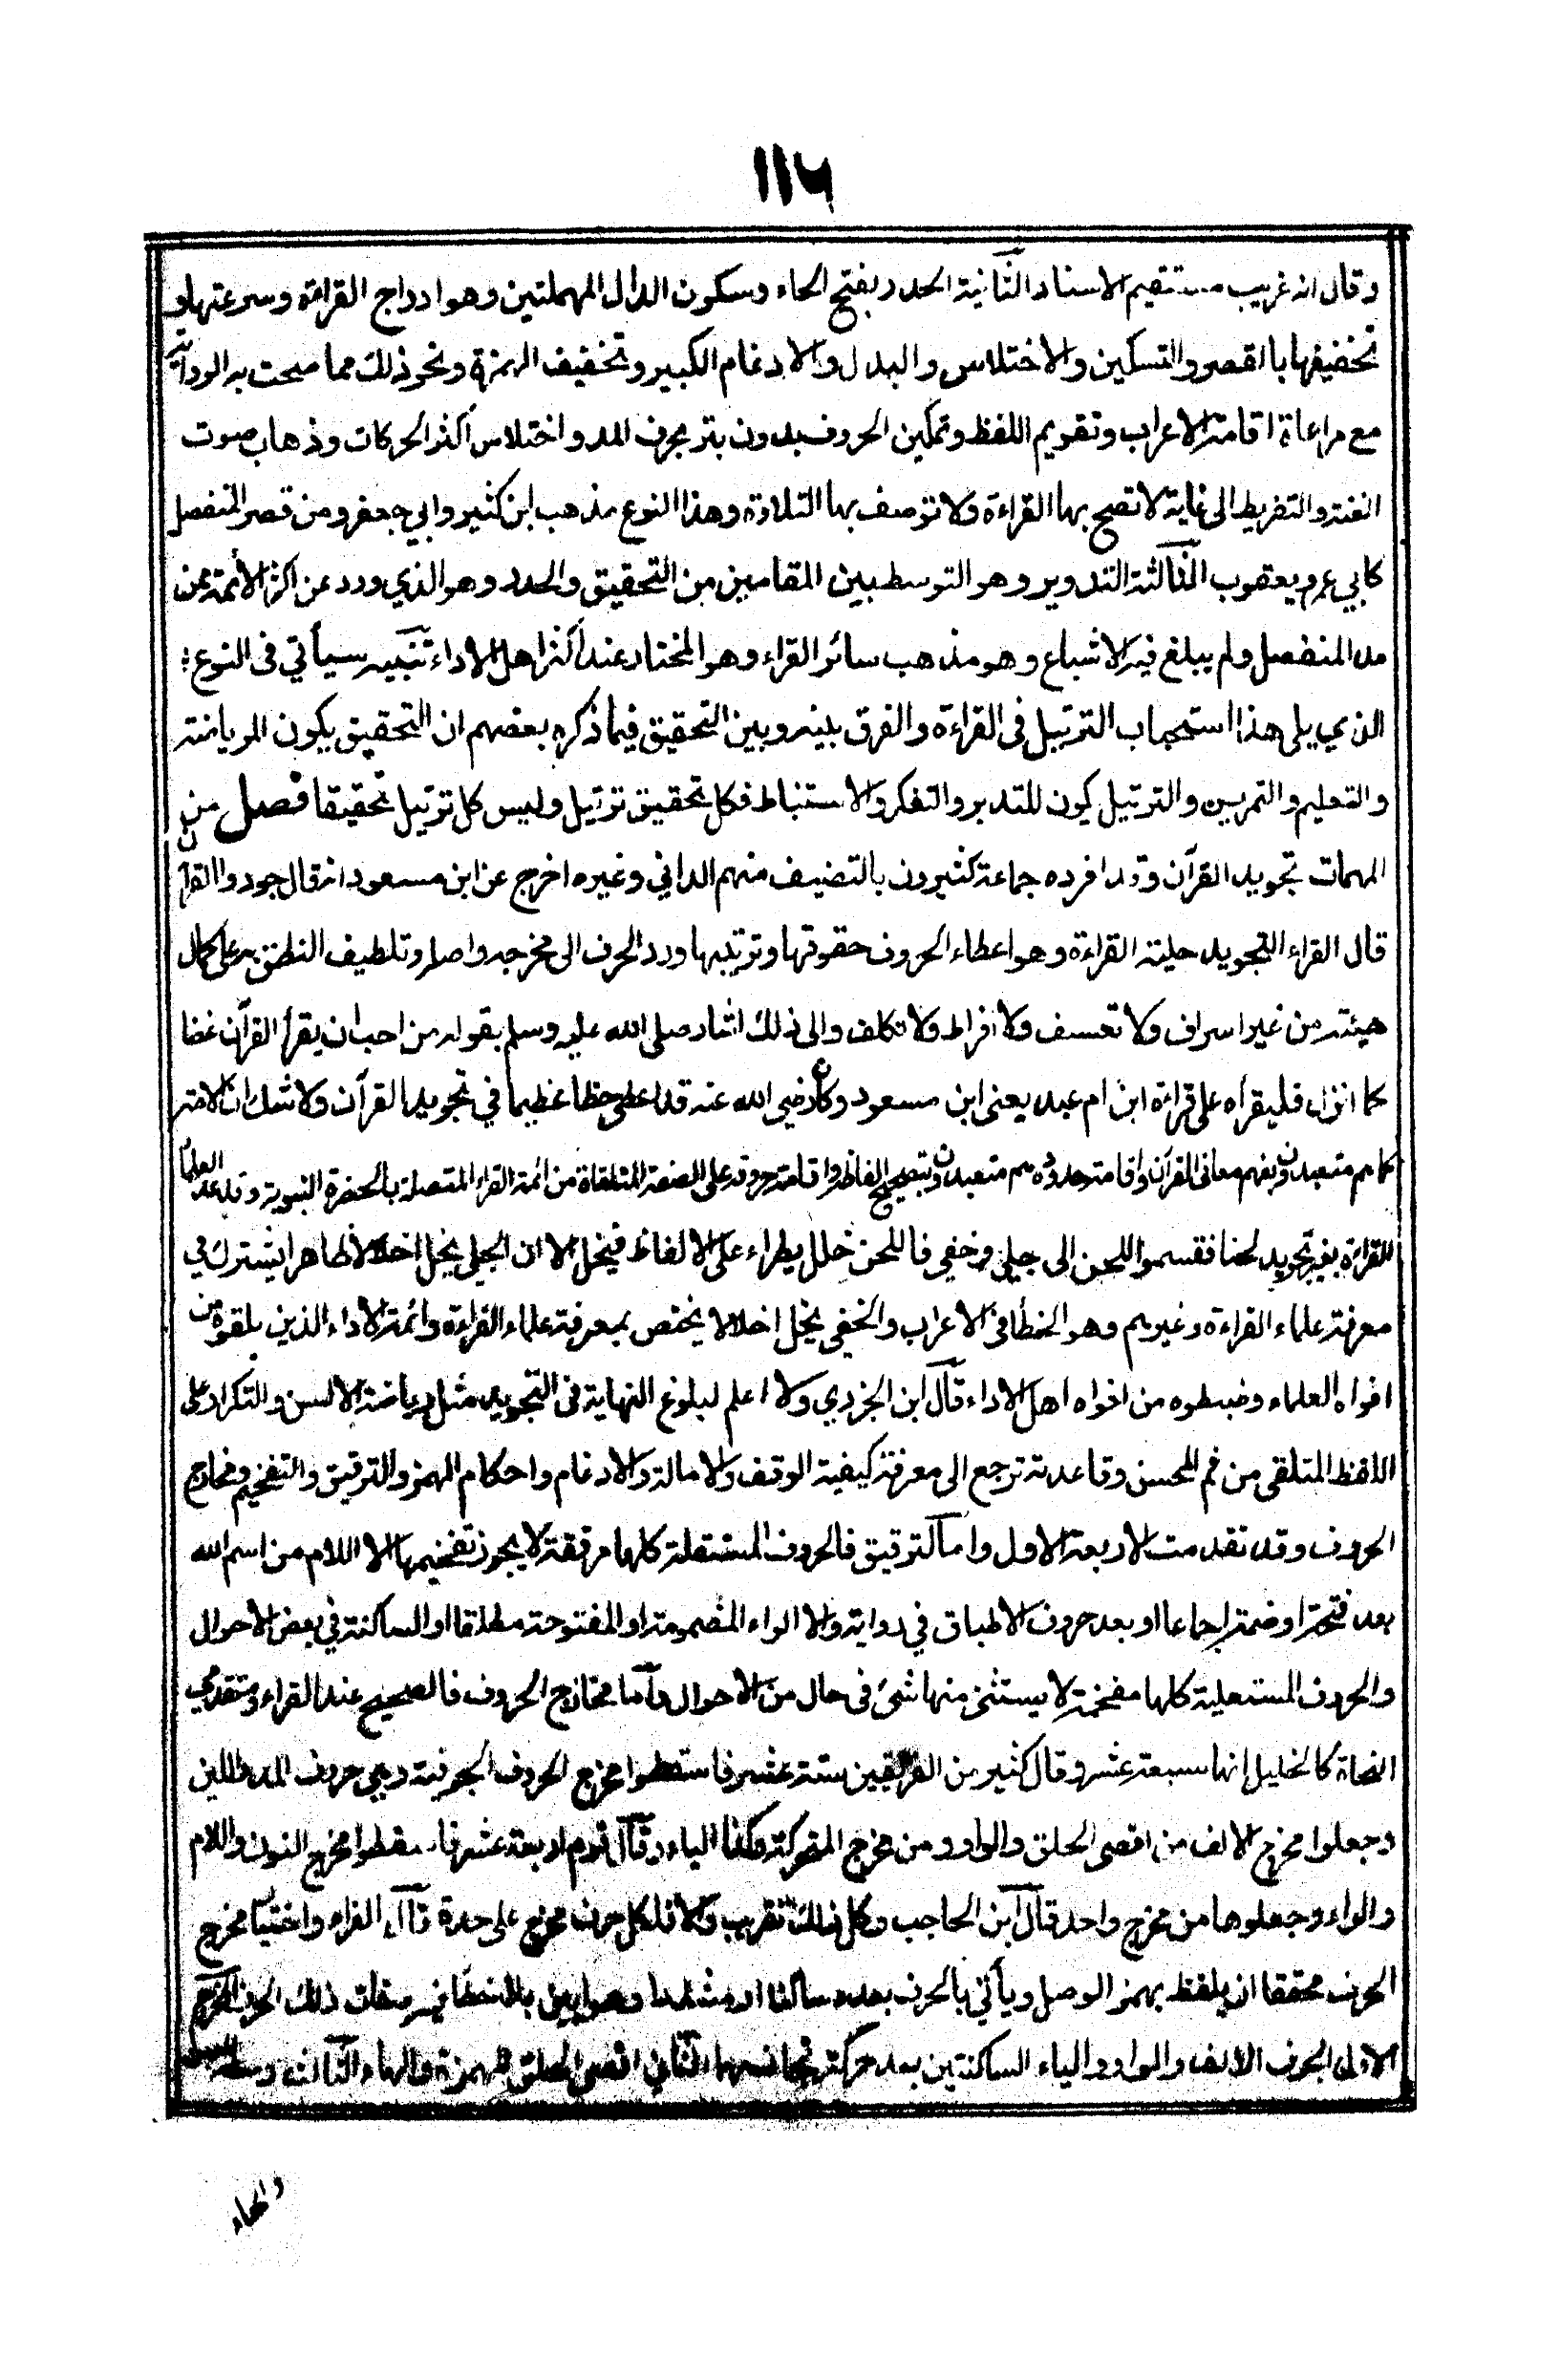 ١١٦
وقال انه غريب مستقيم الاسناد الثانية الحدر بفتح الحاء وسكون الدال المهملتين وهو ادراج القراءة وسرعتها و
تخفيفها بالقصر والتسكين والاختلاس والبدل والادغام الكبير وتخفيف الهمزة ونحو ذلك مما صحت به الرواية
مع مراعاة اقامة الاعراب وتقويم اللفظ وتمكين الحروف بدون بتر بحرف المد واختلاس أكثر الحركات وذهاب صوت
الغنة والتفريط الى غاية لا تصح بها القراءة ولا توصف بها التلاوة وهذا النوع مذهب ابن كثير وابي جعفر ومن قصر المنفصل
كابي عمرو يعقوب الثالثة التدوير وهو التوسط بين المقامين من التحقيق والحدر وهو الذي ورد عن اكثر الأئمة ممن
مد المنفصل ولم يبلغ فيه الاشباع وهو مذهب سائر القراء وهو المختار عند أكثر اهل الاداء تنبيه سيأتي في النوع
الذي يلي هذا استحباب الترتيل في القراءة والفرق بينه وبين التحقيق فيما ذكره بعضهم ان التحقيق يكون للرياضة
والتعليم والتمرين والترتيل يكون للتدبر والتفكر والاستنباط فكل تحقيق ترتيل وليس كل ترتيل تحقيقا فصل من
المهمات تجويد القرآن وقد افرده جماعة كثيرون بالتصنيف منهم الداني وغيره اخرج عن ابن مسعود انه قال جودوا القرآن
قال القراء التجويد حلية القراءة وهو اعطاء الحروف حقوقها وترتيبها ورد الحرف الى مخرجه واصله وتلطيف النطق به على كمال
هيئته من غير اسراف ولا تعسف ولا افراط ولا تكلف والى ذلك اشار صلى الله عليه وسلم بقوله من احب ان يقرأ القرآن غضا
كما انزل فليقرأه على قراءة ابن ام عبد يعني ابن مسعود وكان رضي الله عنه قد اعطي حظا عظيما في تجويد القرآن ولا شك ان الامة
كما هم متعبدون بفهم معاني القرآن واقامة حدوده هم متعبدون بتصحيح الفاظه واقامة حروفه على الصفة المتلقاة من ائمة القراء المتصلة بالحضرة النبوية وقد عد العلماء
القراءة بغير تجويد لحنا فقسموا اللحن الى جلي وخفي فاللحن خلل يطراء على الالفاظ فيخل الا ان الجلي يخل اخلالا ظاهرا يشترك في
معرفته علماء القراءة وغيرهم وهو الخطأ في الاعراب والخفي يخل اخلالا يختص بمعرفته علماء القراءة وائمة الاداء الذين تلقوه من
افواه العلماء وضبطوه من افواه اهل الاداء قال ابن الجزري ولا اعلم لبلوغ النهاية في التجويد مثل رياضة الالسن والتكرار على
اللفظ المتلقى من فم المحسن وقاعدته ترجع الى معرفة كيفية الوقف والامالة والادغام واحكام الهمز والترقيق والتفخيم ومخارج
الحروف وقد تقدمت الاربعة الاول واما الترقيق فالحروف المستفلة كلها مرققة لا يجوز تفخيمها الا اللام من اسم الله
بعد فتحة او ضمة اجماعا او بعد حروف الاطباق في رواية والا الراء المضمومة او المفتوحة مطلقا او الساكنة في بعض الاحوال
والحروف المستعلية كلها مفخمة لا يستثنى منها شئ في حال من الاحوال وأما مخارج الحروف فالصحيح عند القراء ومتقدمي
النحاة كالخليل إنها سبعة عشر وقال كثير من الفريقين ستة عشر فاسقطوا مخرج الحروف الجوفية وهي حروف المد واللين
وجعلوا مخرج الالف من اقصى الحلق والواو من مخرج المتحركة وكذا الياء وقال قوم اربعة عشر فاسقطوا مخرج النون واللام
والراء وجعلوها من مخرج واحد قال ابن الحاجب وكل ذلك تقريب والا فلكل حرف مخرج على حدة قال الفراء واختيار مخرج
الحرف محققا ان يلفظ بهمز الوصل ويأتي بالحرف بعده ساكنا او مشددا وهو ابين ملاحظا فيه صفات ذلك الحرف المخرج
الاول الجوف الالف والواو والياء الساكنتين بعد حركة تجانسهما الثاني اقصى الحلق الهمزة والهاء الثالث وسطه للعين
والحاء